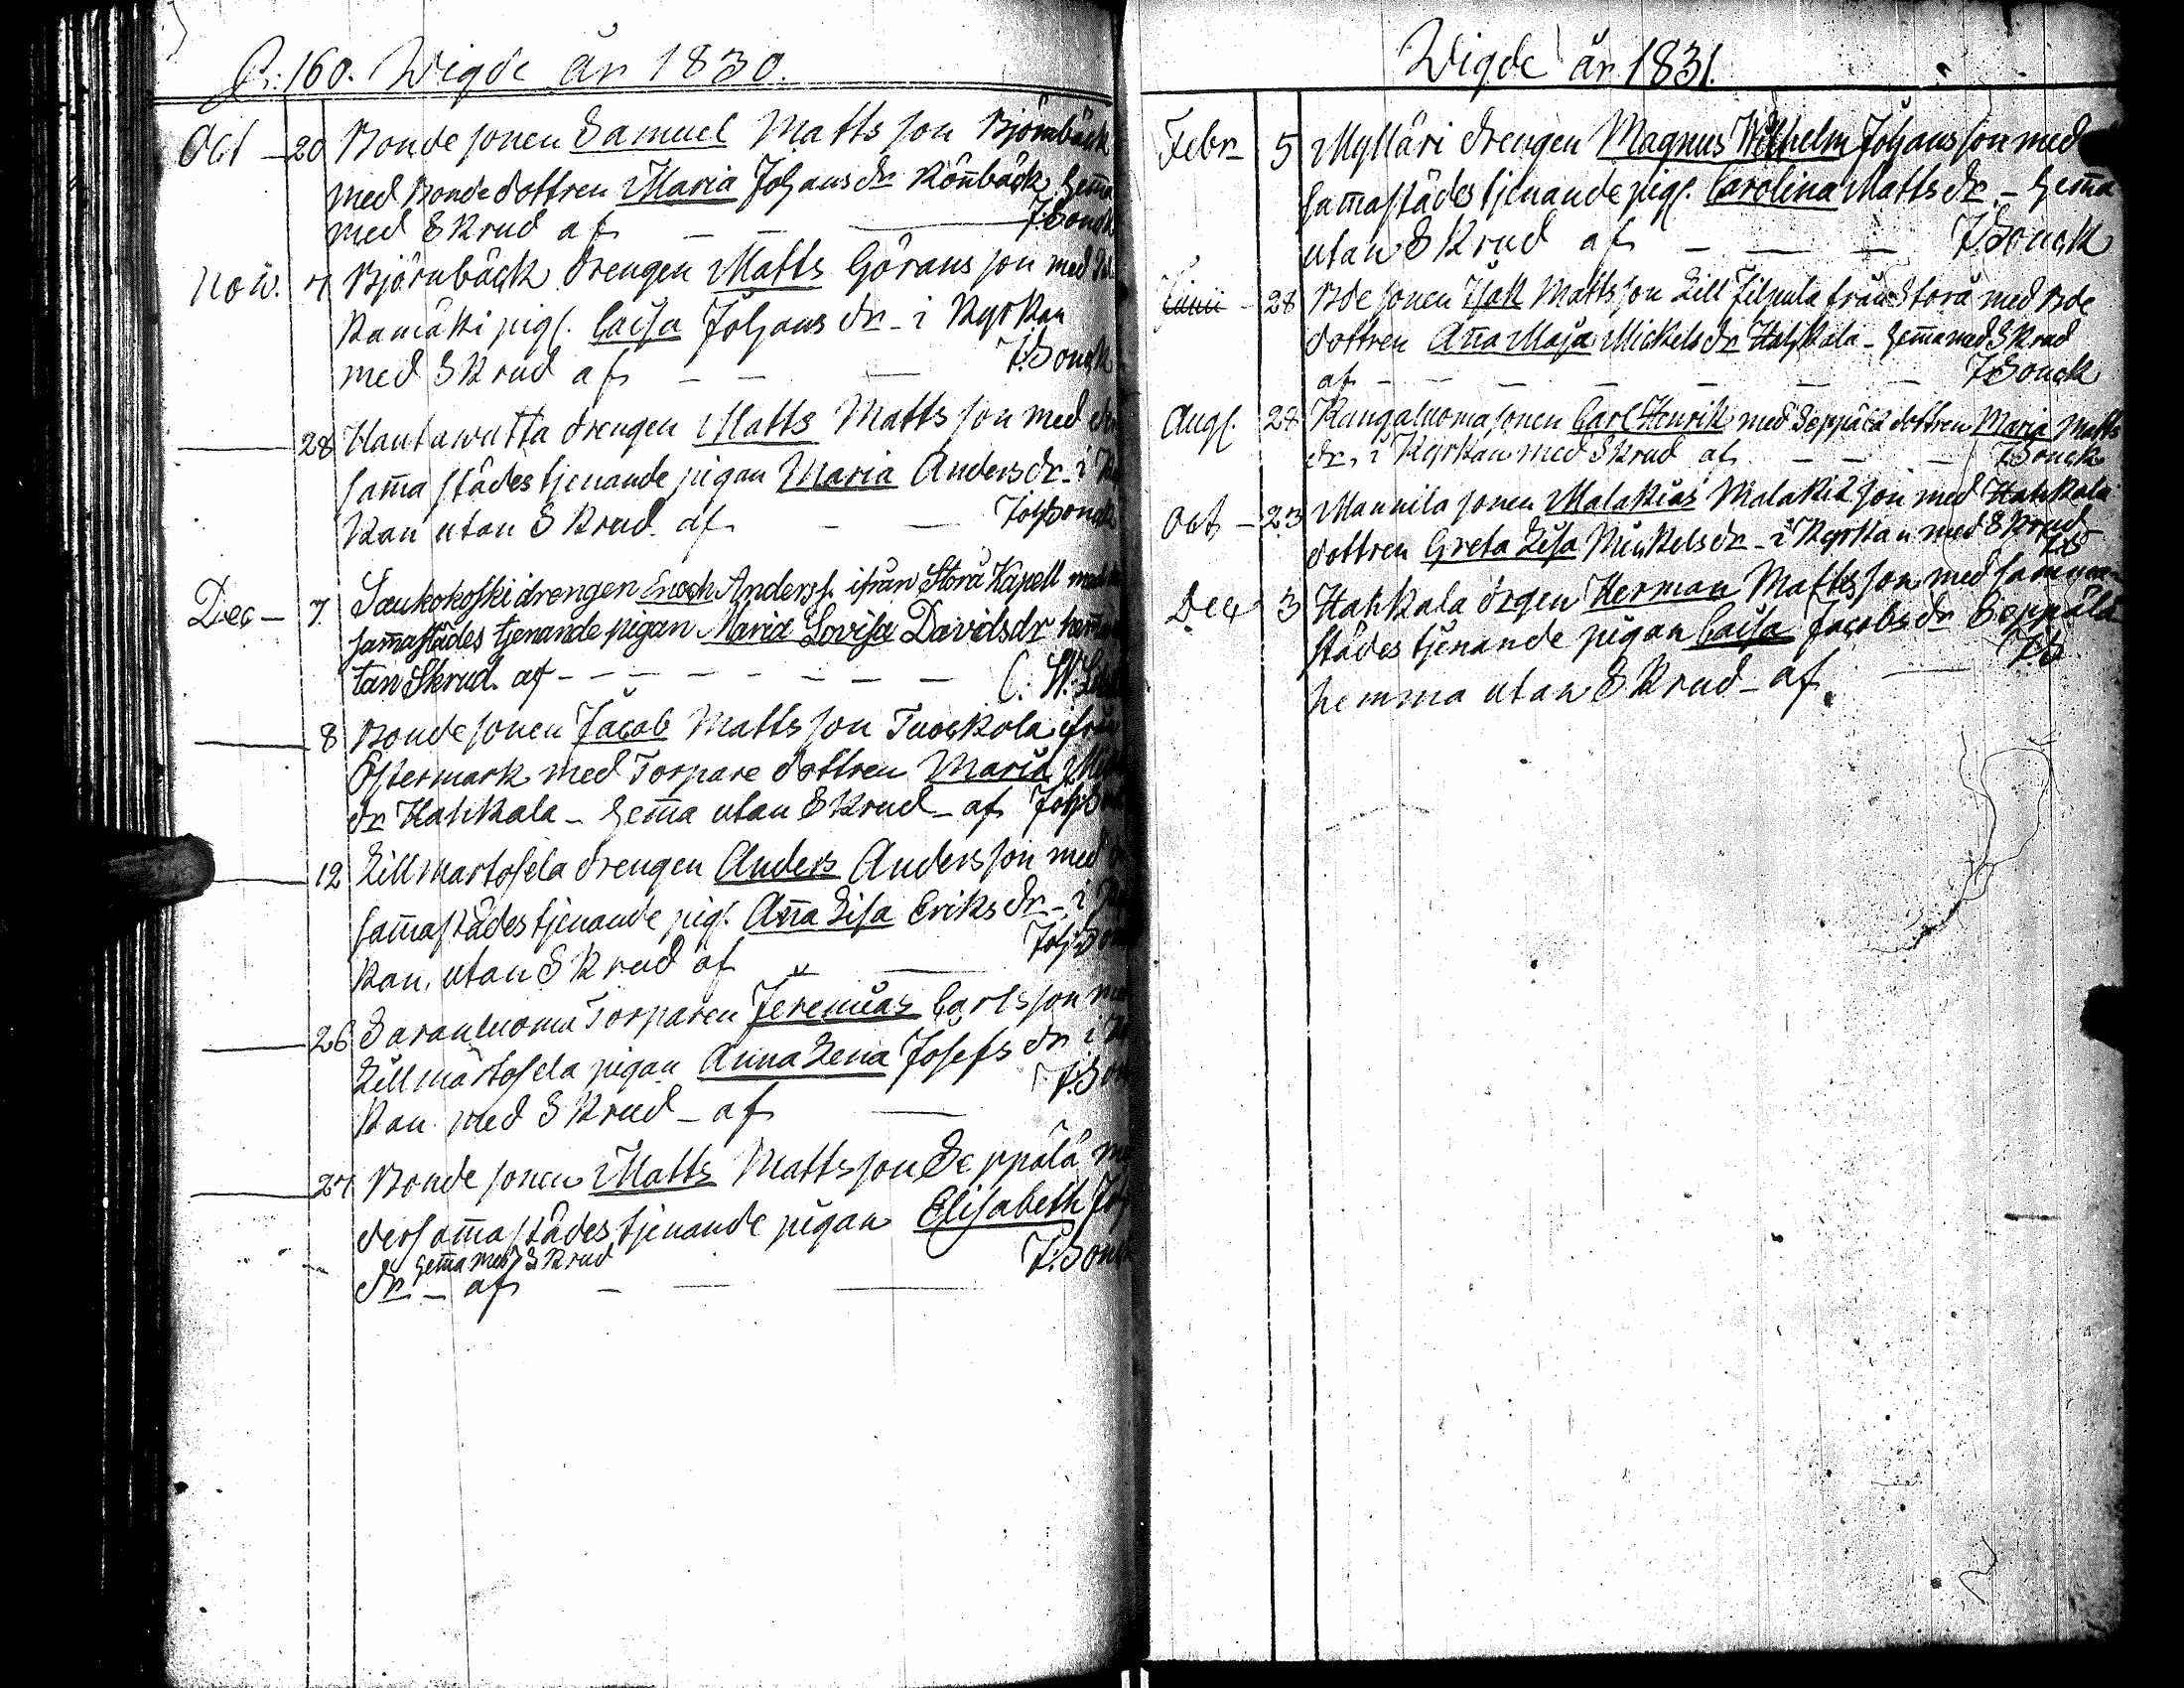 P. 160. Wigde år 1830.
Oct 20 Bonde sonen Samuel Matts son Björnbäck
med Bonde dottren Maria Johans dr Rönbäck hem̄a
med Skrud af J. Bonck
Nov. 7 Björnbäck drengen Matts Görans son med
Kamäki pig. Caisa Johans dr - i Kyrkan
med Skrud af J. Bonck
28 Hautawutta drengen Matts Matts son med
sam̄astädes tjenande pigan Maria Anders dr - i
kan utan Skrud af Joh Bonck
Dec - 7. Saukokoski drengen Enoch Anderss. ifrån Storå Kapell med
sam̄astädes tjenande pigan Maria Lovisa Davidsdr
tan Skrud. af C. W.
8 Bonde sonen Jacob Matts son Tuockola ifrån
Östermark med Torpare dottren Maria
dr Hahkala - hem̄a utan Skrud - af Joh
12 Lillmartosela drengen Anders Anders son med
sam̄astädes tjenande pig. An̄a Lisa Eriks dr - i
kan. utan Skrud af Joh
26 Saranluoma Torparen Jeremias Carls son
Lillmårtosela pigan Anna Lena Josefs dr i
kan med Skrud - af J.
27 Bonde sonen Matts Matts son Seppälä
dersam̄astädes tjenande pigan Elisabeth Joh
hem̄a med Skrud
dr - af J. Bonck
Wigde år 1831.
Febr 5 Mylläri drengen Magnus Wilhelm Johans son med
sam̄astädes tjenande pig. Carolina Matts dr. - hem̄a
utan Skrud af J. Bonck
Junii - 28 Bde sonen Isak Matts son Lill Filpula från Storå med Bde
dottren An̄a Maja Mickels dr Hahkala - hem̄a med Skrud
af J Bonck
Aug. 28 Kangasluoma sonen Carl Henrik med Seppälä dottren Maria Matts
dr. i Kyrkan med Skrud af J Bonck
Oct - 23 Mannila sonen Malakias Malakias son med Hahkala
dottren Greta Lisa Mickels dr - i Kyrkan med Skrud
JB
Dec 3 Hahkala drgen Herman Matts son med samma
städes tjenande pigan Caisa Jacobs dr Seppälä
hemma utan Skrud - af JB